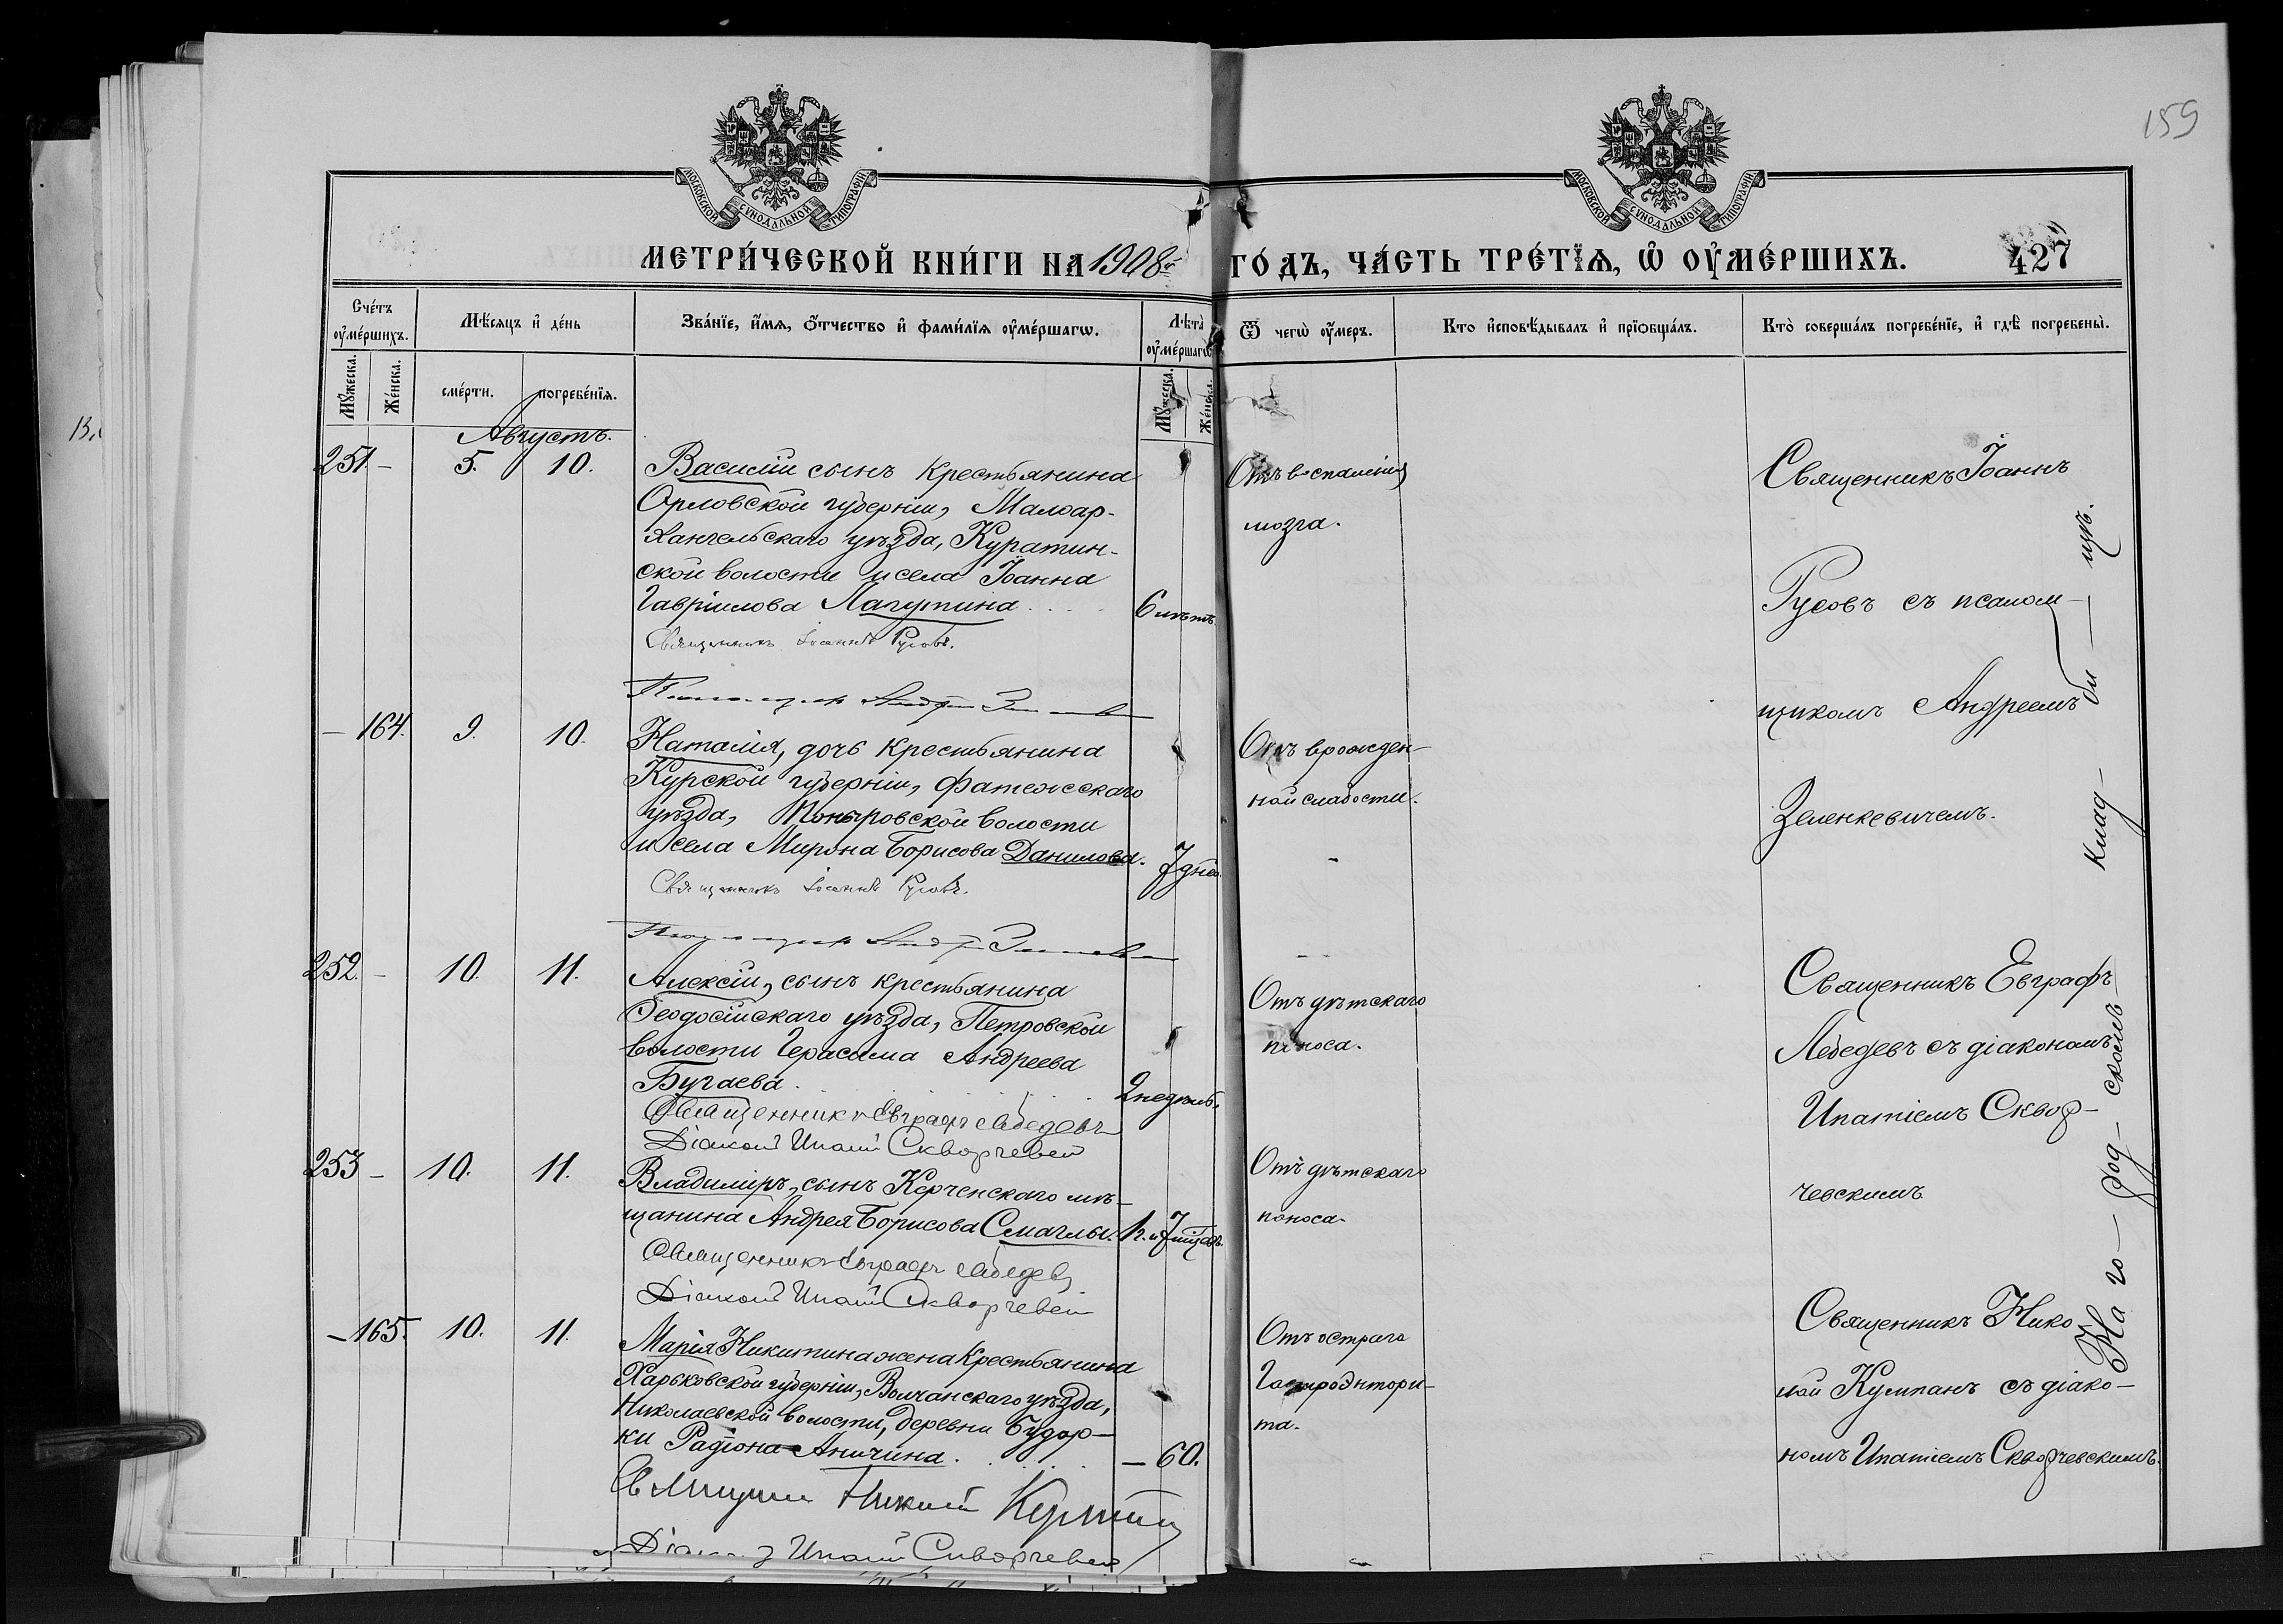 159
МОСКОВСКОЙ СУНОДАЛЬНОЙ ТИПОГРАФІИ
МОСКОВСКОЙ СУНОДАЛЬНОЙ ТИПОГРАФІИ
МЕТРИ́ЧЕСКОЙ КНИ́ГИ НА 1908й ГО́ДЪ, ЧА́СТЬ ТРЕ́ТІѦ, Ѡ҆ ОУ҆МЕ́РШИХЪ. 427
Сче́тъ оу҆ме́ршихъ.
Мѣ́сяцъ и҆ де́нь
Зва́нїе, и҆́мѧ, ѻ҆́тчество и҆ фами́лїѧ оу҆ме́ршагѡ.
Лѣ́та оу҆ме́ршагѡ
Ѿ чегѡ̀ оу҆́меръ.
Кто и҆сповѣ́дывалъ и҆ прїѡбща́лъ.
Кто̀ соверша́лъ погребе́нїе, и҆ гдѣ̀ погребены̀.
Мꙋ́жеска.
Же́нска.
сме́рти.
погребе́нїѧ.
Мꙋ́жеска.
Же́нска.
Августъ.
251. – 5. 10.
Василій сынъ крестьянина
Орловской губерніи, Малоар-
хангельскаго уѣзда, Куратин-
ской волости и села Іоанна
Гавріилова Лагутина
6 лѣтъ.
Священникъ Іоаннъ Русовъ.
Отъ воспаленія
мозга.
Священникъ Іоаннъ
Русовъ съ псалом-
щикомъ Андреемъ
Зеленкевичемъ.
– 164. 9. 10.
Наталія, дочь крестьянина
Курской губерніи, Фатежскаго
уѣзда, Поныровской волости
и села Мирона Борисова Данилова.
7 дней.
Священникъ Іоаннъ Русовъ.
Отъ врожден-
ной слабости.
252. – 10. 11.
Алексій, сынъ крестьянина
Ѳеодосійскаго уѣзда, Петровской
волости Герасима Андреева
Бугаева
2 недѣль.
Священникъ Евграфъ Лебедевъ
Діаконъ Ипатій Скворчевскій
Отъ дѣтскаго
поноса.
Священникъ Евграфъ
Лебедевъ съ діакономъ
Ипатіемъ Сквор-
чевскимъ
253 – 10. 11.
Владиміръ, сынъ Керченскаго мѣ-
щанина Андрея Борисова Смаглы.
Священникъ Евграфъ Лебедевъ
Діаконъ Ипатій Скворчевскій
Отъ дѣтскаго
поноса.
– 165. 10. 11.
Марія Никитина жена крестьянина
Харьковской губерніи, Волчанскаго уѣзда,
Николаевской волости, деревни Будар-
ки Радіона Аничина.
– 60.
Священникъ Николай Кулпанъ
Діаконъ Ипатій Скворчевскій
Отъ острага
Гастроэнтори-
та.
Священникъ Нико-
лай Кулпанъ съ діако-
номъ Ипатіемъ Скворчевскимъ.
На го- род- скомъ клад- би- щѣ.